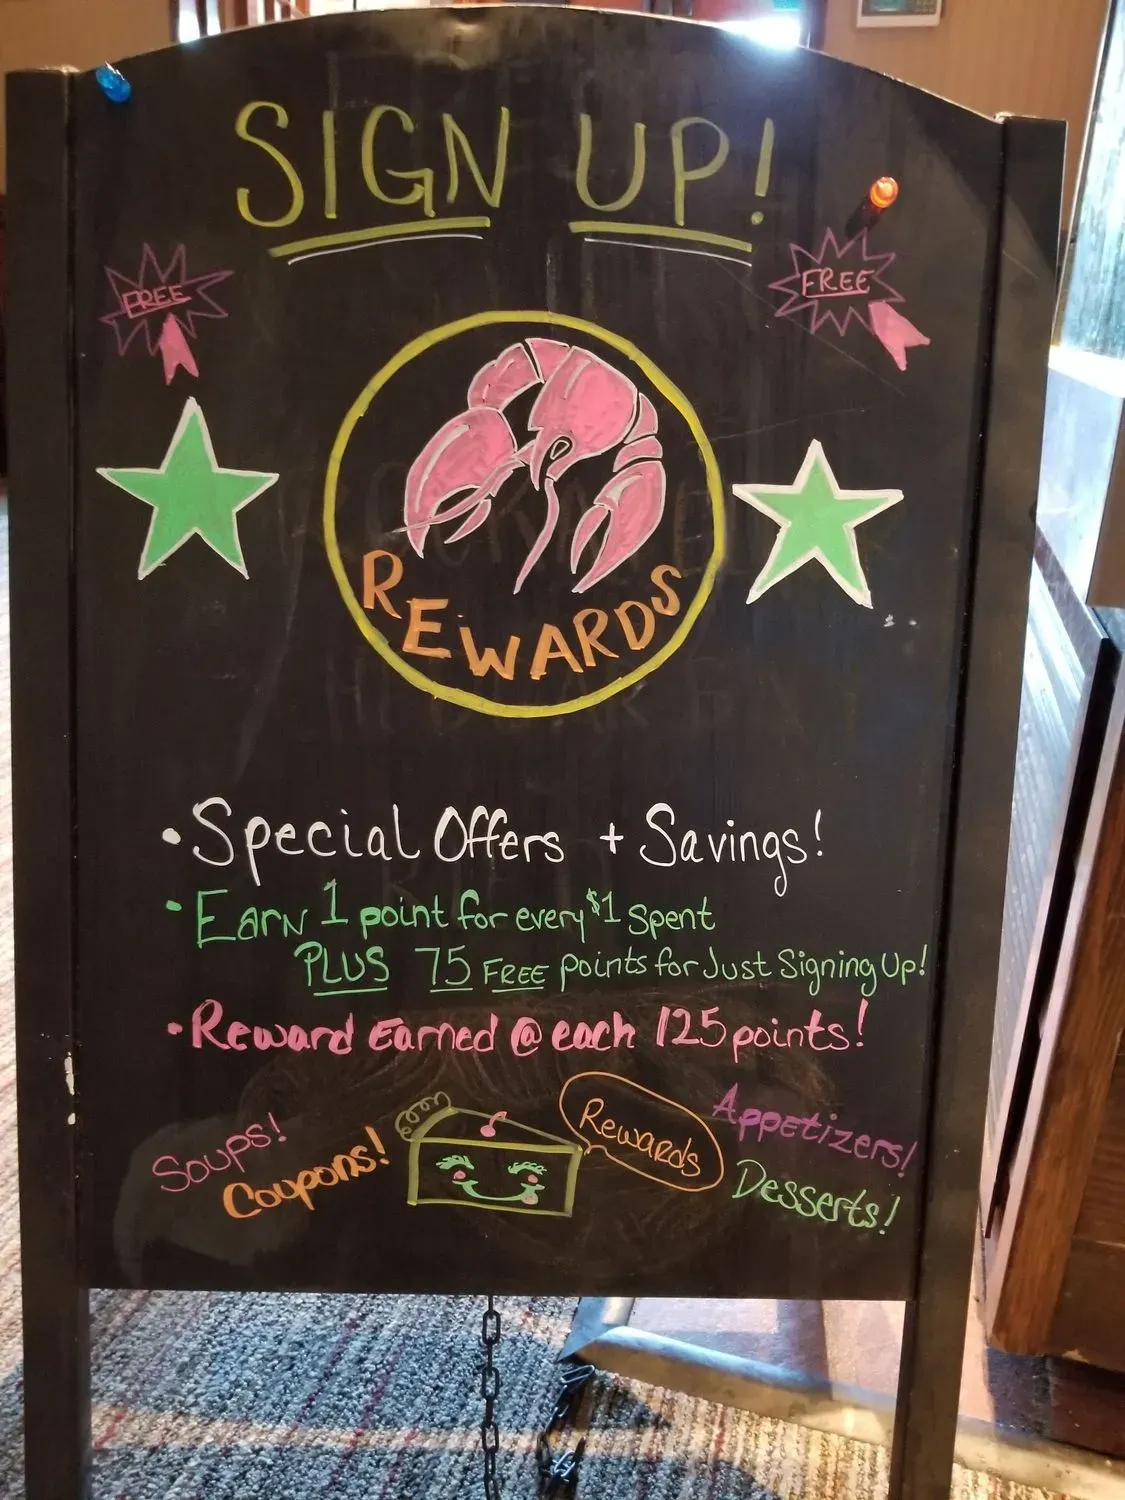 SIGN UP!
FREE
FREE
REWARDS
• Special Offers + Savings!
• Earn 1 point for every $1 spent
PLUS 75 FREE points for Just Signing Up!
• Reward Earned @ each 125 points!
Soups!
Coupons!
Rewards
Appetizers!
Desserts!